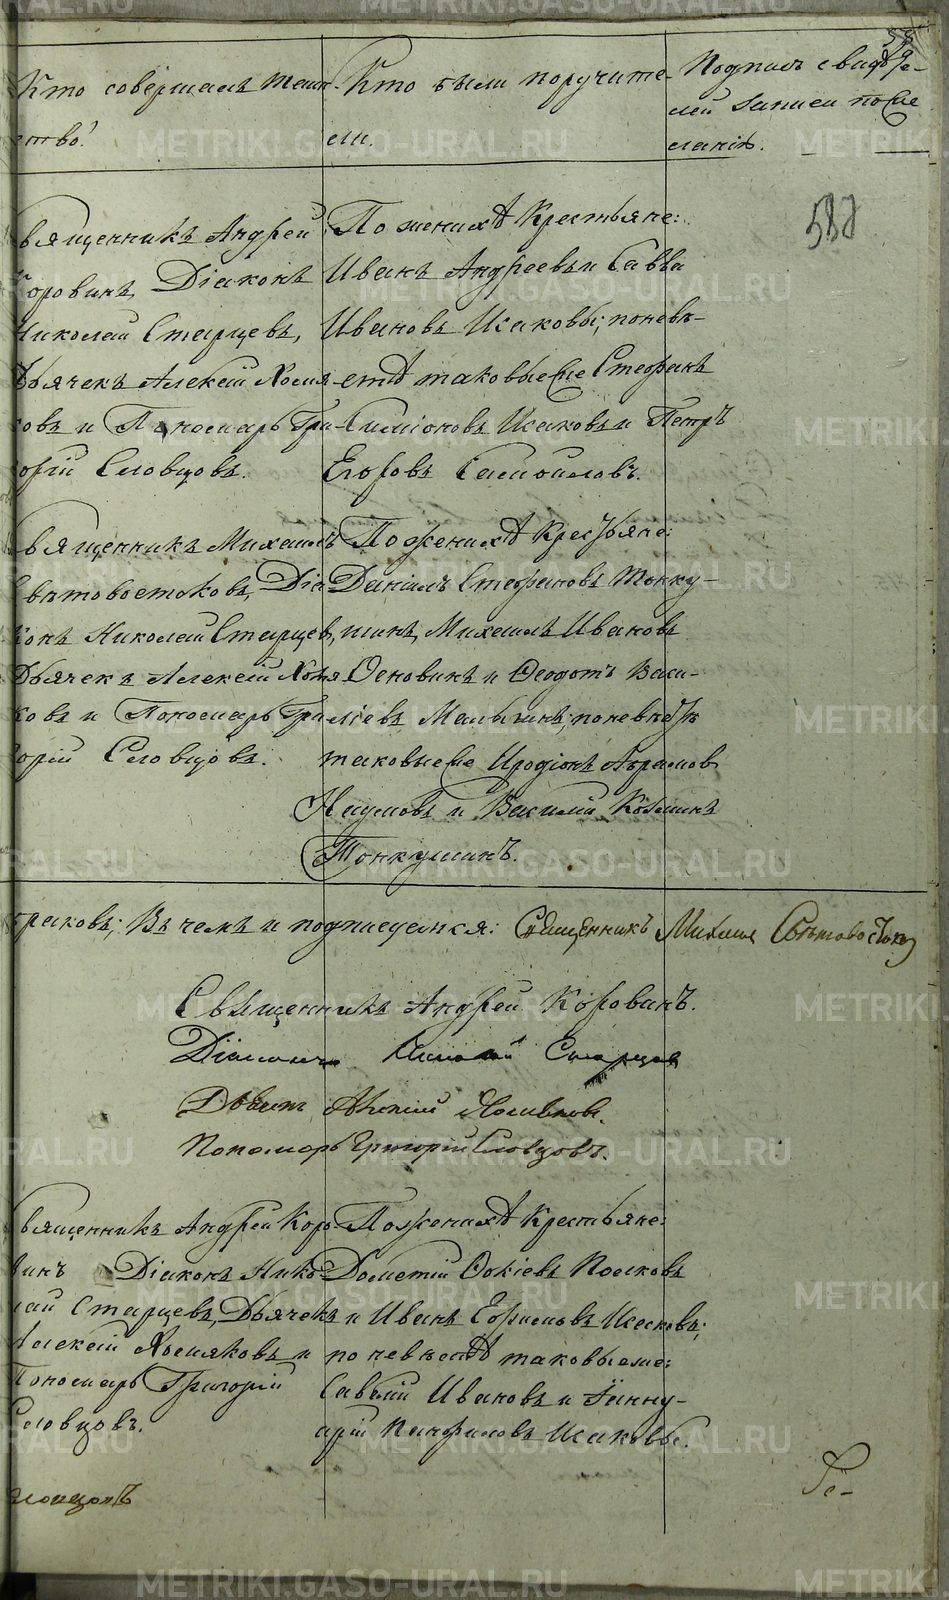 Кто совершалъ таин-
ство?
Кто были поручите-
ли.
Подпись свидѣте-
лей записи по же-
ланію.
58
589
вященникъ Андрей
Коровинъ, Діаконъ
Николай Старцевъ,
Дьячекъ Алексѣй Хомя-
ковъ и Пономарь Гри-
горій Словцовъ.
По женихѣ Крестьяне:
Иванъ Андреевъ и Савва
Ивановъ Исаковы; по невѣ-
стѣ таковыеже Стефанъ
Симіоновъ Исаковъ и Петръ
Егоровъ Самойловъ.
вященникъ Михаилъ
Свѣтовостоковъ, Діа
конъ Николай Старцевъ,
Дьячекъ Алексѣй Хомя
ковъ и Пономарь Гри
горій Словцовъ.
По женихѣ Крестьяне:
Даніилъ Стефановъ Тонку-
шинъ, Михаилъ Ивановъ
Основинъ и Ѳеодотъ Васи-
ліевъ Малыгинъ; по невѣстѣ
таковыеже Иродіонъ Абрамовъ
Наумовъ и Василій Козминъ
Тонкушинъ.
браковъ; Въ чемъ и подписуемся: Священникъ Михаилъ Свѣтовостоковъ
Священникъ Андрей Коровинъ.
Діаконъ Николай Старцевъ
Дьячекъ Алексій Хомяковъ.
Пономарь Григорій Словцовъ.
вященникъ Андрей Коро
винъ Діаконъ Нико
лай Старцевъ, Дьячекъ
Алексѣй Хомяковъ и
Пономарь Григорій
Словцовъ.
По женихѣ Крестьяне:
Дометій Ѳокіевъ Поскковъ
и Иванъ Ефимовъ Исаковъ;
по невѣстѣ таковыеже:
Савелій Ивановъ и Іанну-
арій Панфиловъ Исаковы.
ловцовъ
Ге-
METRIKI.GASO-URAL.RU